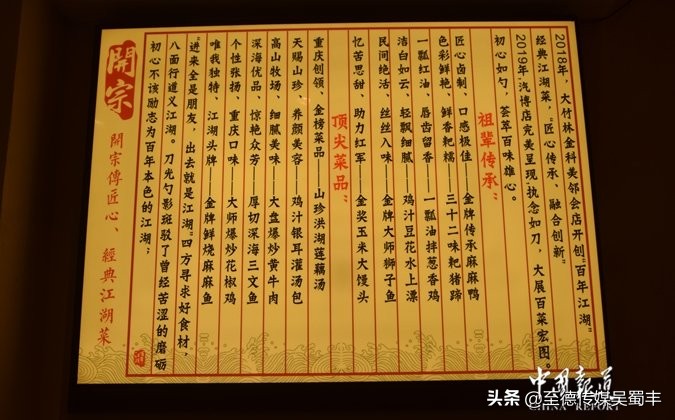 2018年，大竹林金科美邻会店开创“百年江湖”
经典江湖菜，“匠心传承、融合创新”
2019年，汽博店完美呈现，执念如刀，大展百菜宏图。
初心如勺，荟萃百味雄心。
祖辈传承：
匠心卤制、口感极佳——金牌传承麻麻鸭
色彩鲜艳、鲜香粑糯——三十二味粑猪蹄
一瓢红油、唇齿留香——一瓢油拌葱香鸡
洁白如云、轻飘细腻——鸡汁豆花水上漂
民间绝活、丝丝入味——金牌大师狮子鱼
忆苦思甜、助力红军——金奖玉米大馒头
顶尖菜品：
重庆创领、金榜菜品——山珍洪湖莲藕汤
天赐山珍、养颜美容——鸡汁银耳灌汤包
高山牧场、细腻美味——大盘爆炒黄牛肉
深海优品、惊艳众芳——厚切深海三文鱼
个性张扬、重庆口味——大师爆炒花椒鸡
唯我独特、江湖头牌——金牌鲜烧麻麻鱼
“进来全是朋友，出去就是江湖。”四方寻求好食材，
八面行道义江湖。刀光勺影斑驳了曾经苦涩的磨砺
初心不该励志为百年本色的江湖；
開宗
開宗傳匠心、經典江湖菜
中国报道
头条 @至德传媒吴蜀丰